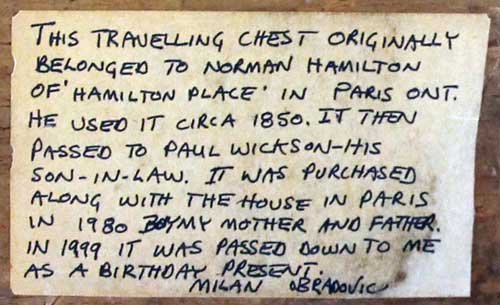 THIS TRAVELLING CHEST ORIGINALLY
BELONGED TO NORMAN HAMILTON
OF 'HAMILTON PLACE' IN PARIS ONT.
HE USED IT CIRCA 1850. IT THEN
PASSED TO PAUL WICKSON-HIS
SON-IN-LAW. IT WAS PURCHASED
ALONG WITH THE HOUSE IN PARIS
IN 1980 BY MY MOTHER AND FATHER.
IN 1999 IT WAS PASSED DOWN TO ME
AS A BIRTHDAY PRESENT.
MILAN OBRADOVIC